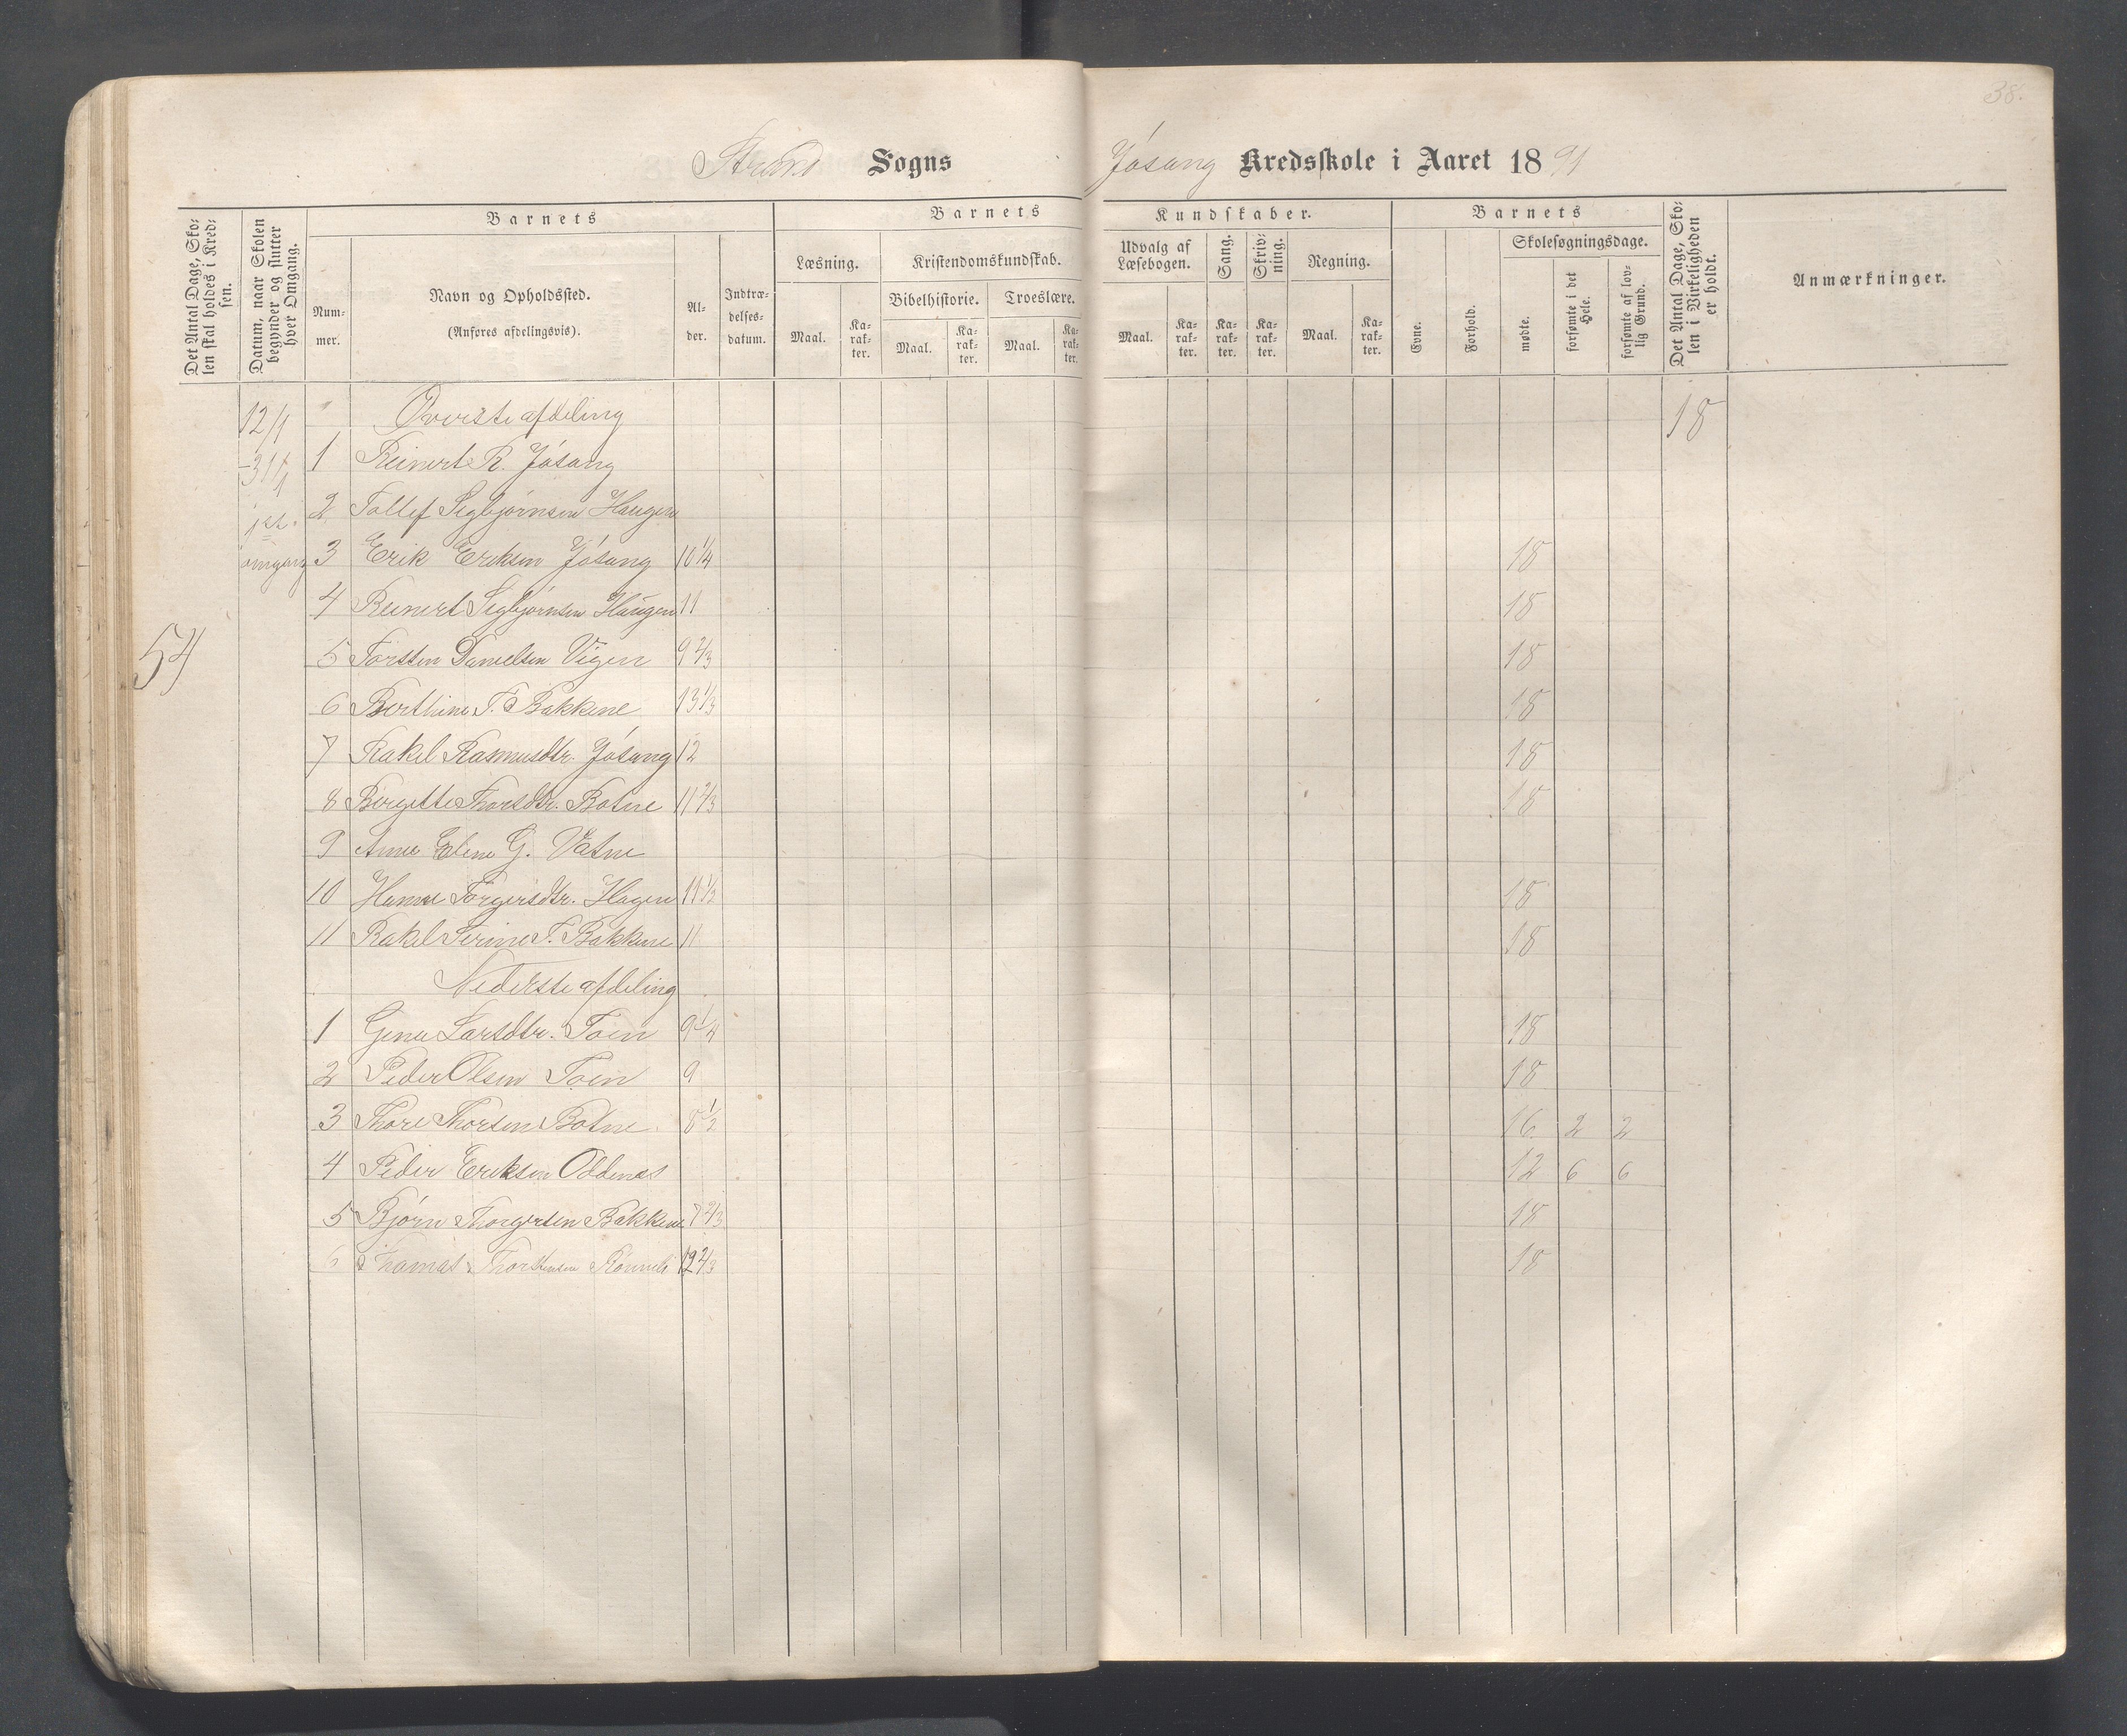 38.
Strand Sogns Jósang Kredsskole i Aaret 1891
Det Antal Dage, Skolen skal holdes i Kredsen.
Datum, naar Skolen begynder og slutter hver Omgang.
Barnets
Nummer.
Navn og Opholdssted.
(Anføres afdelingsvis).
Alder.
Indtrædelsesdatum.
Barnets Kundskaber.
Læsning.
Maal.
Karakter.
Kristendomskundskab.
Bibelhistorie.
Maal.
Karakter.
Troeslære.
Maal.
Karakter.
Udvalg af Læsebogen.
Maal.
Karakter.
Sang.
Karakter.
Skrivning.
Karakter.
Regning.
Maal.
Karakter.
Barnets
Evne.
Forhold.
Skolesøgningsdage.
mødte.
forsømte i det Hele.
forsømte af lovlig Grund.
Det Antal Dage, Skolen i Virkeligheden er holdt.
Anmærkninger.
12/1 Øverste afdeling 18
-31/1 1 Reinert R. Jósang
1ste 2 Tollef Sigbjørnsen Haugen
omgang 3 Erik Eriksen Jósang 10 1/4 18
4 Reinert Sigbjørnsen Haugen 11 18
54 5 Torsten Danielsen Vigen 9 2/3 18
6 Berthine T. Bakkene 13 1/3 18
7 Rakel Rasmusdtr. Jósang 12 18
8 Bergitte Thorsdtr. Botne 11 2/3 18
9 Anne Elene G. Vatne
10 Hanne Torgersdtr. Hagen 11 1/2 18
11 Rakel Serine T. Bakkene 11 18
Nederste afdeling
1 Gina Larsdtr. Toen 9 1/4 18
2 Peder Olsen Toen 9 18
3 Thore Thorsen Botne 8 1/2 16 2 2
4 Peder Eriksen Oddenes 12 6 6
5 Bjørn Thorgersen Bakkene 7 2/3 18
6 Thomas Thorstensen 12 2/3 18